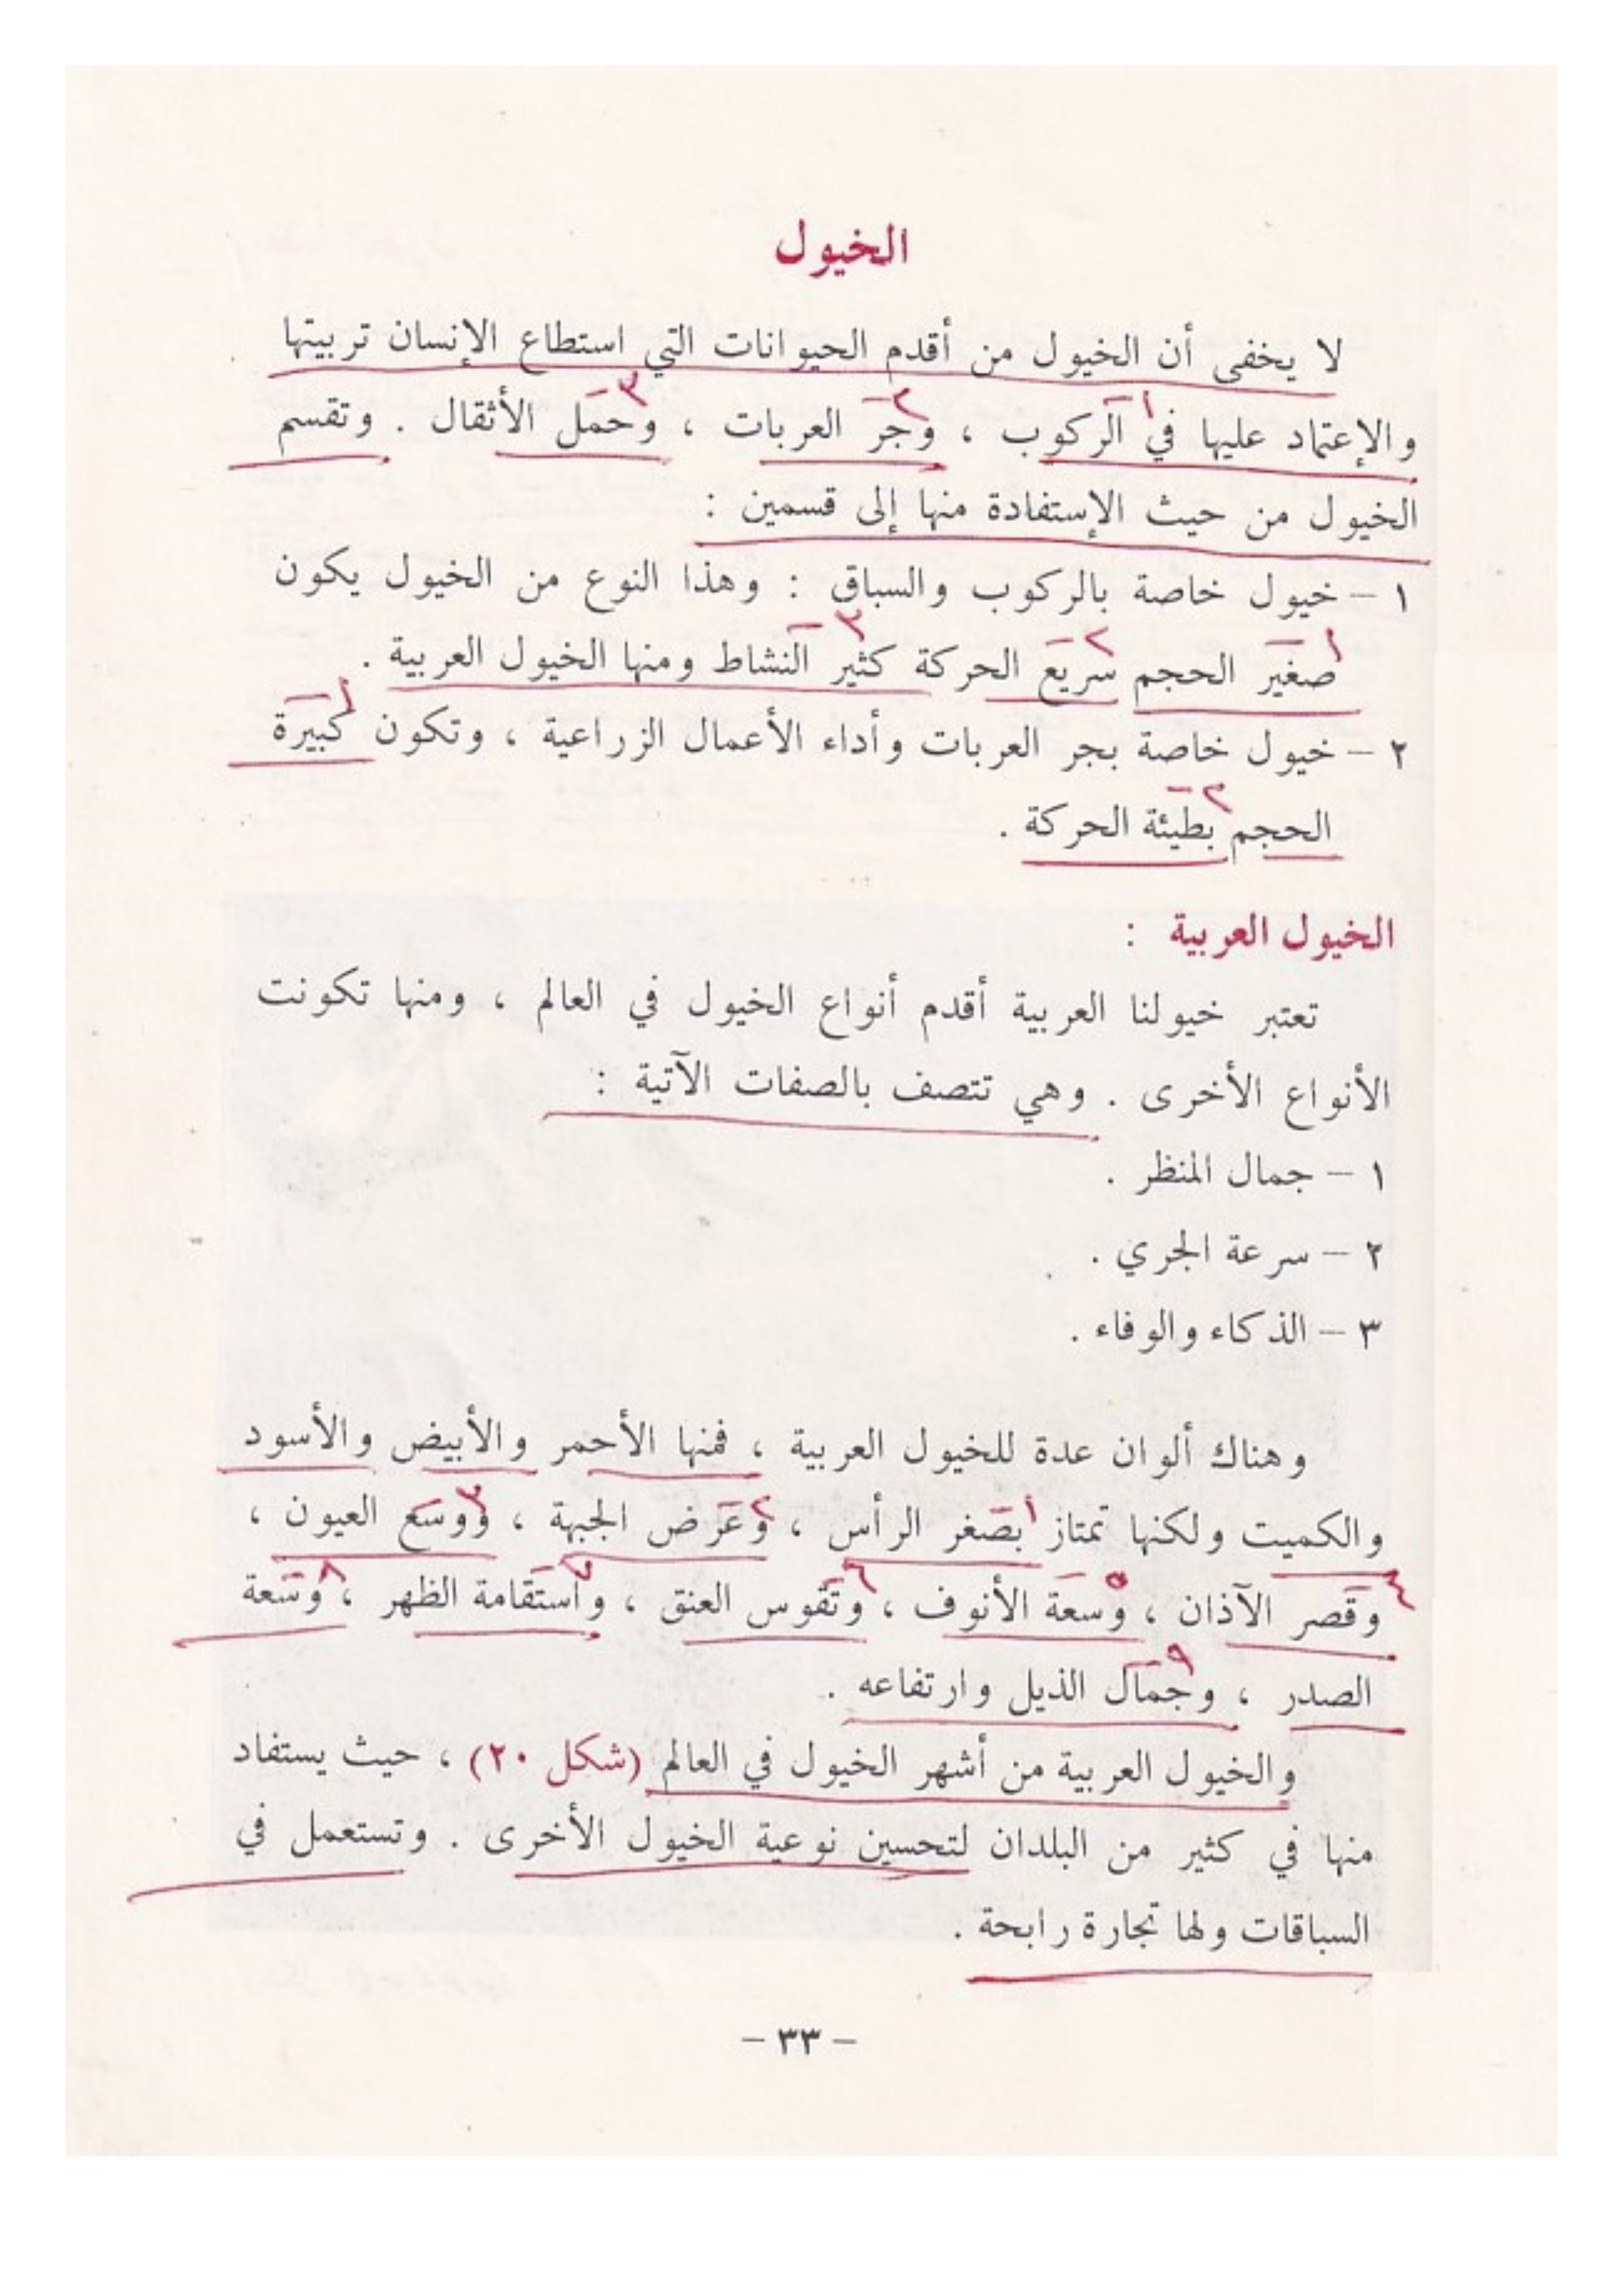 الخيول
لا يخفى أن الخيول من أقدم الحيوانات التي استطاع الإنسان تربيتها
والإعتماد عليها في الركوب ، وجر العربات ، وحمل الأثقال . وتقسم
الخيول من حيث الإستفادة منها إلى قسمين :
١ – خيول خاصة بالركوب والسباق : وهذا النوع من الخيول يكون
صغير الحجم سريع الحركة كثير النشاط ومنها الخيول العربية .
٢ – خيول خاصة بجر العربات وأداء الأعمال الزراعية ، وتكون كبيرة
الحجم بطيئة الحركة .
الخيول العربية :
تعتبر خيولنا العربية أقدم أنواع الخيول في العالم ، ومنها تكونت
الأنواع الأخرى . وهي تتصف بالصفات الآتية :
١ – جمال المنظر .
٢ – سرعة الجري .
٣ – الذكاء والوفاء .
وهناك ألوان عدة للخيول العربية ، فمنها الأحمر والأبيض والأسود
والكميت ولكنها تمتاز بصغر الرأس ، وعرض الجبهة ، ووسع العيون ،
وقصر الآذان ، وسعة الأنوف ، وتقوس العنق ، واستقامة الظهر ، وسعة
الصدر ، وجمال الذيل وارتفاعه .
والخيول العربية من أشهر الخيول في العالم (شكل ٢٠) ، حيث يستفاد
منها في كثير من البلدان لتحسين نوعية الخيول الأخرى . وتستعمل في
السباقات ولها تجارة رابحة .
– ٣٣ –